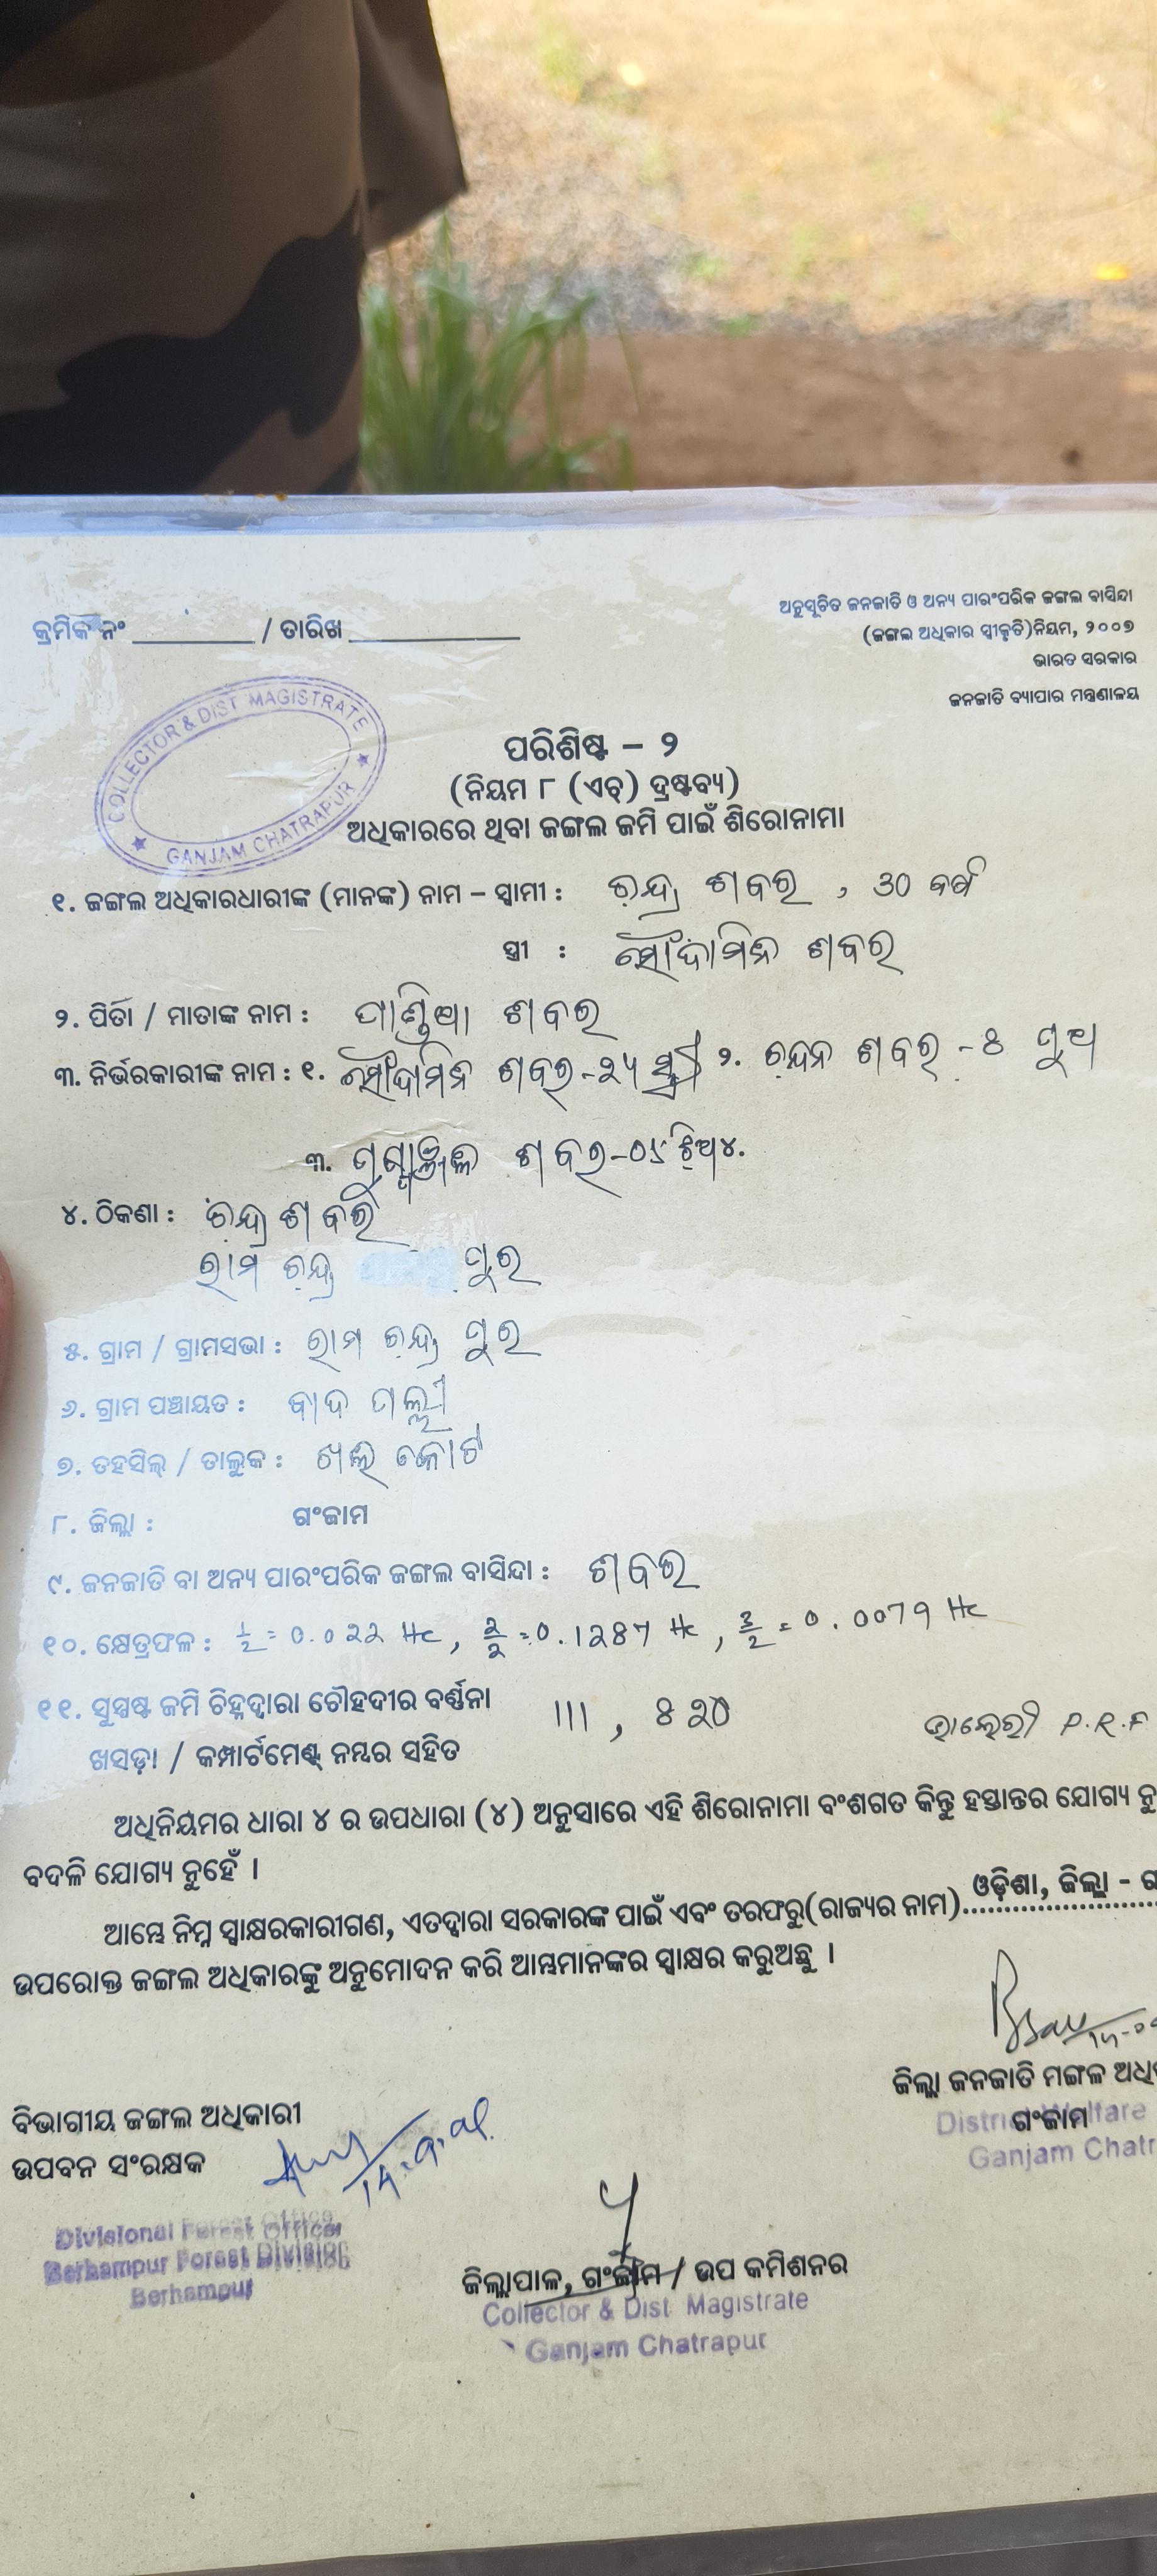 କ୍ରମିକ ନଂ __________ / ତାରିଖ ______________
ଅନୁସୂଚିତ ଜନଜାତି ଓ ଅନ୍ୟ ପାରଂପରିକ ଜଙ୍ଗଲ ବାସିନ୍ଦା
(ଜଙ୍ଗଲ ଅଧିକାର ସ୍ୱୀକୃତି)ନିୟମ, ୨୦୦୭
ଭାରତ ସରକାର
ଜନଜାତି ବ୍ୟାପାର ମନ୍ତ୍ରଣାଳୟ
COLLECTOR & DIST MAGISTRATE
GANJAM CHATRAPUR
ପରିଶିଷ୍ଟ – ୨
(ନିୟମ ୮ (ଏଚ୍) ଦ୍ରଷ୍ଟବ୍ୟ)
ଅଧିକାରରେ ଥିବା ଜଙ୍ଗଲ ଜମି ପାଇଁ ଶିରୋନାମା
୧. ଜଙ୍ଗଲ ଅଧିକାରଧାରୀଙ୍କ (ମାନଙ୍କ) ନାମ – ସ୍ୱାମୀ : ଚନ୍ଦ୍ର ଶବର , ୩୦ ବର୍ଷ
ସ୍ତ୍ରୀ : ସୌଦାମିନ ଶବର
୨. ପିତା / ମାତାଙ୍କ ନାମ : ଶବର
୩. ନିର୍ଭରକାରୀଙ୍କ ନାମ : ୧. ସୌଦାମିନ ଶବର ସ୍ତ୍ରୀ ୨. ଚନ୍ଦନ ଶବର - ୫ ପୁଅ
୩. ଶବର ଝିଅ ୪.
୪. ଠିକଣା : ଚନ୍ଦ୍ର ଶବର
ରାମ ଚନ୍ଦ୍ର ପୁର
୫. ଗ୍ରାମ / ଗ୍ରାମସଭା : ରାମ ଚନ୍ଦ୍ର ପୁର
୬. ଗ୍ରାମ ପଞ୍ଚାୟତ : ବାଦ ପଲ୍ଲୀ
୭. ତହସିଲ୍ / ତାଲୁକ : ଖଲ କୋଟ
୮. ଜିଲ୍ଲା : ଗଂଜାମ
୯. ଜନଜାତି ବା ଅନ୍ୟ ପାରଂପରିକ ଜଙ୍ଗଲ ବାସିନ୍ଦା : ଶବର
୧୦. କ୍ଷେତ୍ରଫଳ : 1/2 = 0.022 Hc, 2/2 = 0.1287 Hc, 3/2 = 0.0079 Hc
୧୧. ସୁସ୍ପଷ୍ଟ ଜମି ଚିହ୍ନଦ୍ୱାରା ଚୌହଦୀର ବର୍ଣ୍ଣନା 111, ୫୨୦ P.R.F
ଖସଡ଼ା / କମ୍ପାର୍ଟମେଣ୍ଟ୍ ନମ୍ବର ସହିତ
ଅଧିନିୟମର ଧାରା ୪ ର ଉପଧାରା (୪) ଅନୁସାରେ ଏହି ଶିରୋନାମା ବଂଶଗତ କିନ୍ତୁ ହସ୍ତାନ୍ତର ଯୋଗ୍ୟ
ବଦଳି ଯୋଗ୍ୟ ନୁହେଁ ।
ଆମ୍ଭେ ନିମ୍ନ ସ୍ୱାକ୍ଷରକାରୀଗଣ, ଏତଦ୍ୱାରା ସରକାରଙ୍କ ପାଇଁ ଏବଂ ତରଫରୁ(ରାଜ୍ୟର ନାମ) ଓଡ଼ିଶା, ଜିଲ୍ଲା -
ଉପରୋକ୍ତ ଜଙ୍ଗଲ ଅଧିକାରଙ୍କୁ ଅନୁମୋଦନ କରି ଆମ୍ଭମାନଙ୍କର ସ୍ୱାକ୍ଷର କରୁଅଛୁ ।
ଜିଲ୍ଲା ଜନଜାତି ମଙ୍ଗଳ
ଗଂଜାମ
District Welfare
Ganjam
ବିଭାଗୀୟ ଜଙ୍ଗଲ ଅଧିକାରୀ
ଉପବନ ସଂରକ୍ଷକ
Divisional Forest Officer
Berhampur Forest Division
Berhampur
ଜିଲ୍ଲାପାଳ, ଗଂଜାମ / ଉପ କମିଶନର
Collector & Dist. Magistrate
Ganjam Chatrapur